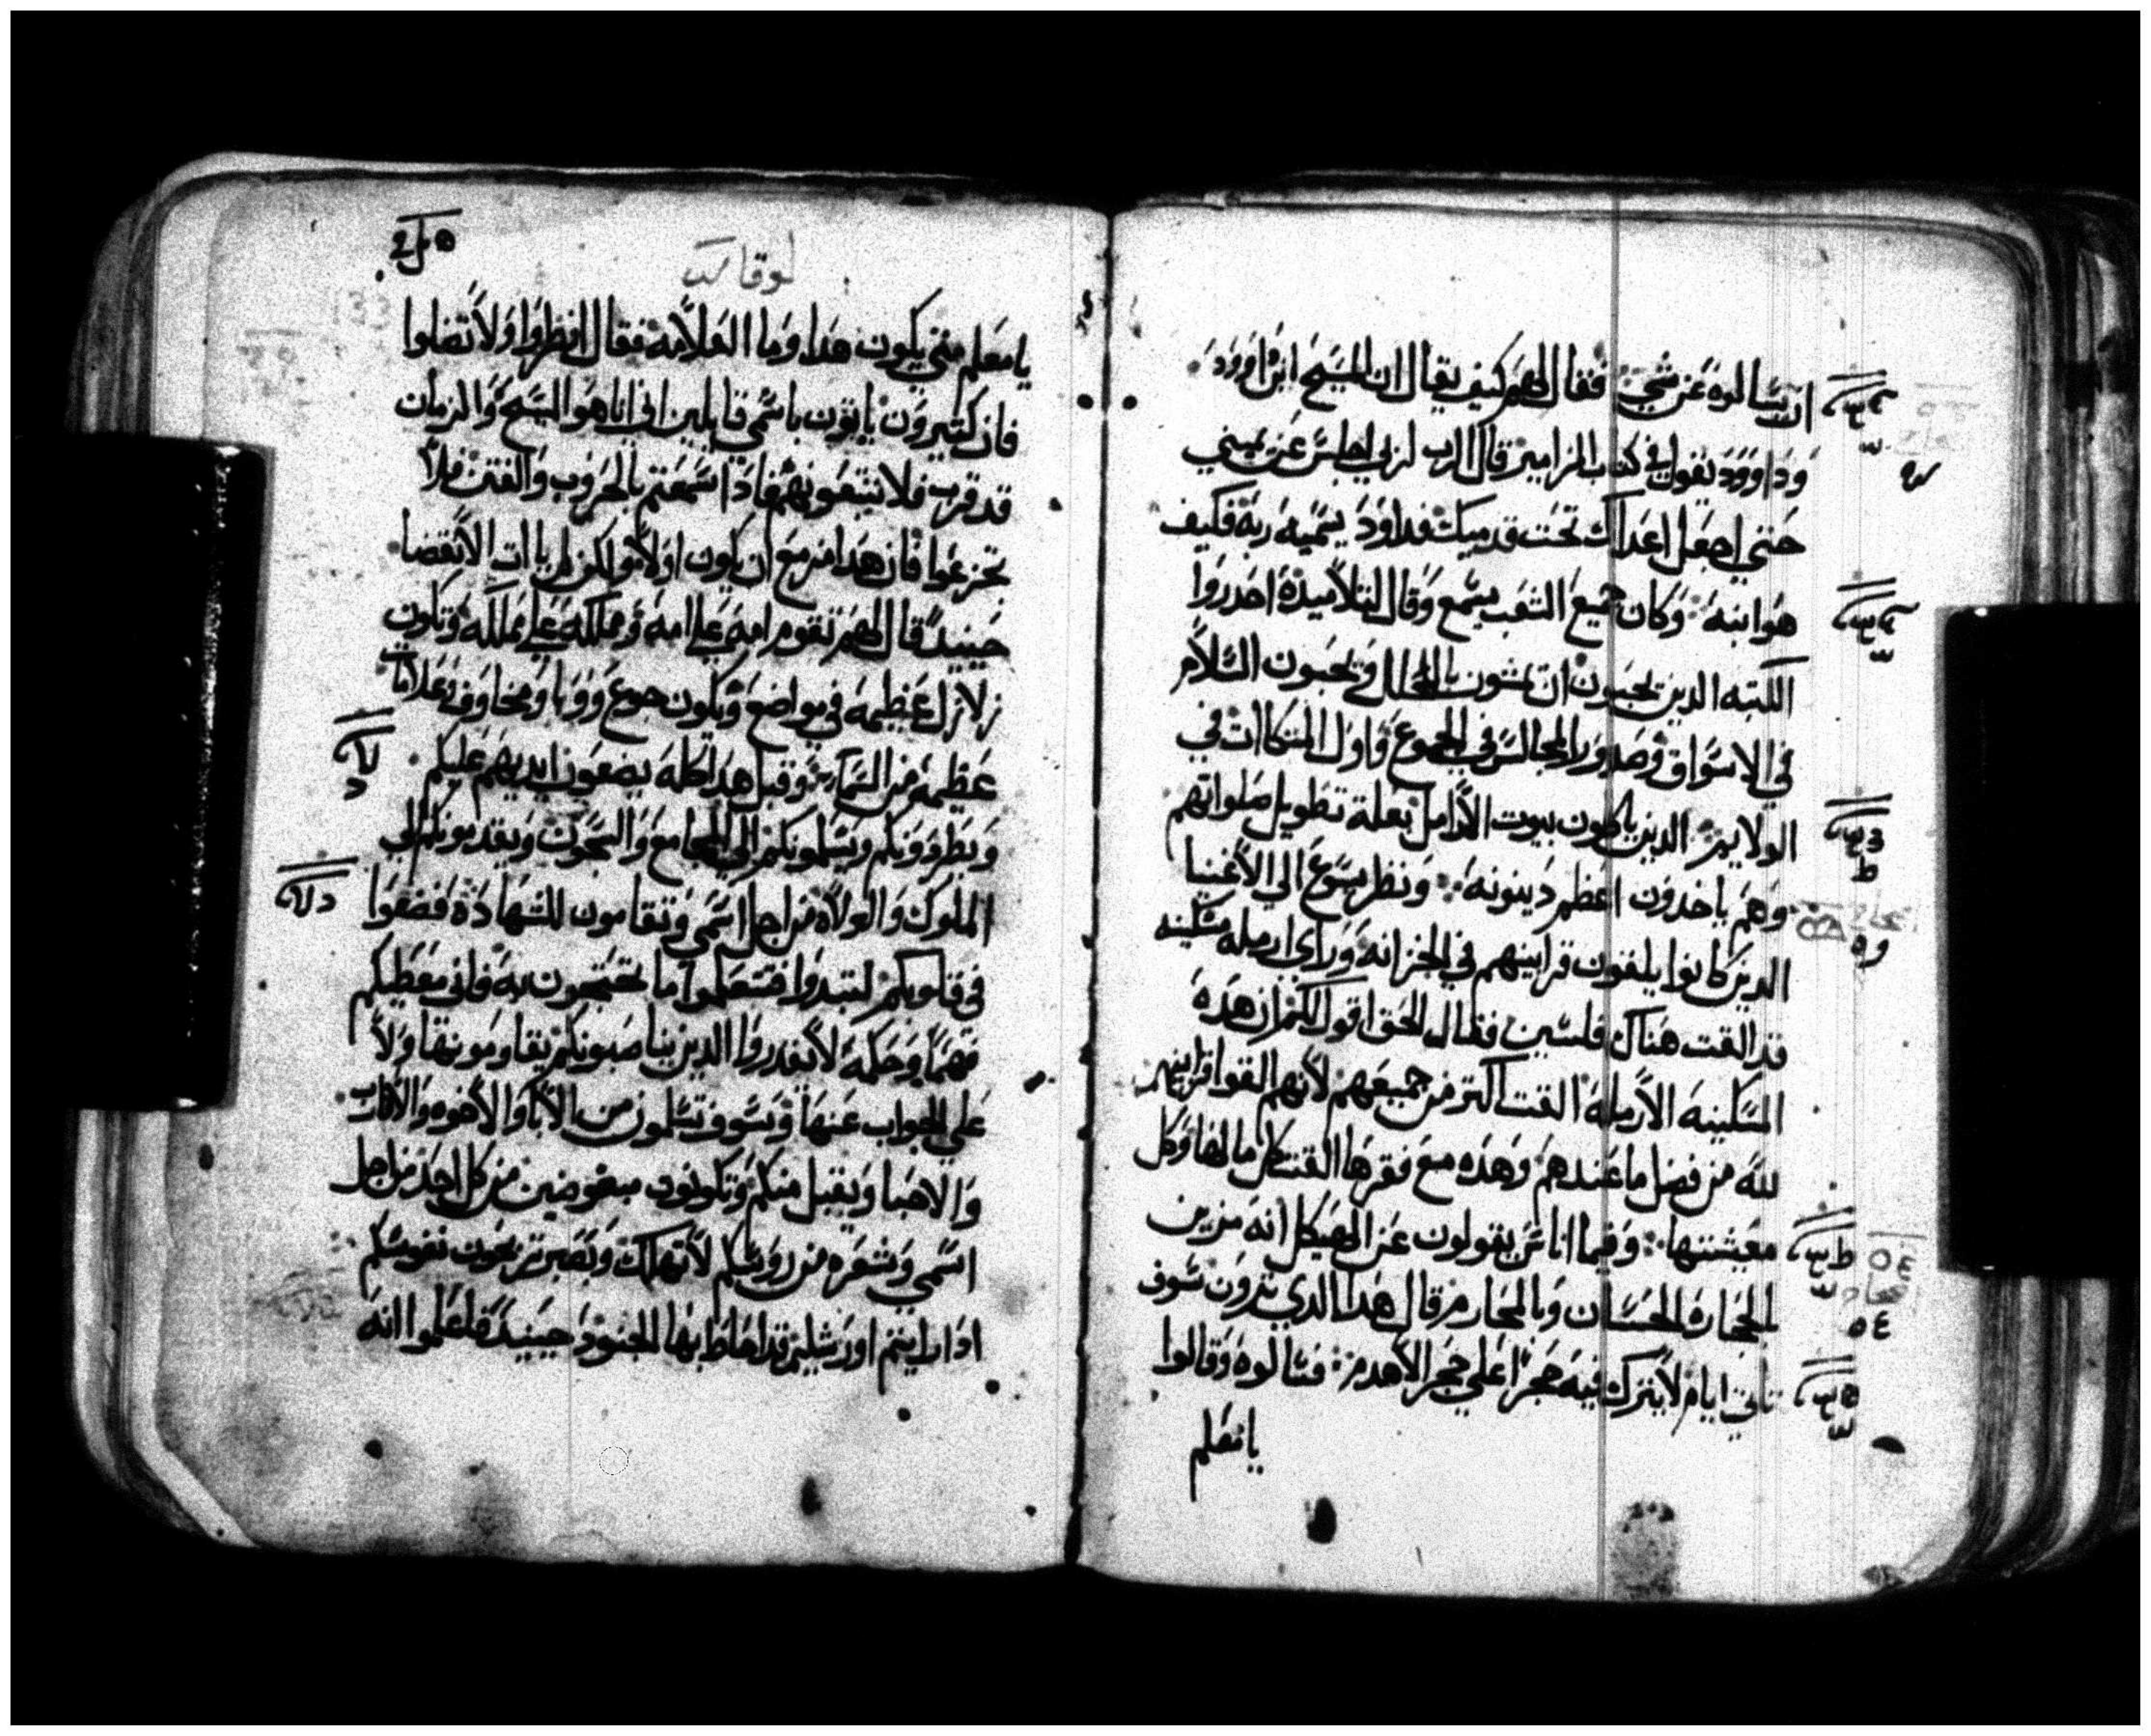 ان يسالوه عن شي فقال لهم كيف يقال ان المسيح ابن داوود
وداوود يقول في كتاب المزامير قال الرب لربي اجلس عن يميني
حتي اجعل اعداك تحت قدميك فداود يسميه ربه فكيف
هو ابنه وكان جميع الشعب يسمع وقال لتلاميده احدروا
الكتبه الدين يحبون ان يمشون بالحلل ويحبون السلام
في الاسواق وصدور المجالس في الجموع واول المتكاات في
الولايم الدين ياكلون بيوت الارامل بعلة تطويل صلواتهم
وهم ياخدون اعظم دينونه ونظر يسوع الي الاغنيا
الدين كانوا يلقون قرابينهم في الخزانه وراي ارمله مسكينه
قد القت هناك فلسين فقال الحق اقول لكم ان هده
المسكينه الارمله القت اكتر من جميعهم لانهم القوا قرابينهم
لله من فضل ما عندهم وهده مع فقرها القت كل ما لها وكل
معيشتها وفيما اناس يقولون عن الهيكل انه مزين
بالحجارة الحسان وبالمحارم قال هدا الدي ترون سوف
تاتي ايام لا يترك فيه حجرا علي حجر الا هدم فسالوه وقالوا
يا معلم
لوقا
يا معلم متي يكون هدا وما العلامه فقال انظروا ولا تضلوا
فان كتيرون ياتون باسمي قايلين اني انا هو المسيح والزمان
قد قرب فلا تتبعونهم فادا سمعتم بالحروب والفتن فلا
تجزعوا فان هدا مزمع ان يكون اولا ولكن لم يات الانقضا
حينيد قال لهم تقوم امه علي امه ومملكه علي مملكه وتكون
زلازل عظيمه في مواضع ويكون جوع ووبا ومخاوف وعلامات
عظيمه من السما وقبل هدا كله يضعون ايديهم عليكم
ويطردونكم ويسلمونكم الي المجامع والسجون ويقدمونكم الي
الملوك والولاه من اجل اسمي وتقامون للشهادة فضعوا
في قلوبكم لتبدوا فتتعلموا ما تحتجون به فاني معطيكم
فهما وحكمه لا تقدروا الدين يناصبونكم يقاومونها ولا
علي الجواب عنها وسوف تسلمون من الابا والاخوه والاقارب
والاحبا ويقتل منكم وتكونون مبغوضين من كل احد من اجل
اسمي وشعره من رووسكم لا تهلك وبصبركم تربحون نفوسكم
ادا رايتم اورشليم قد احاط بها الجنود حينيد فاعلموا انه